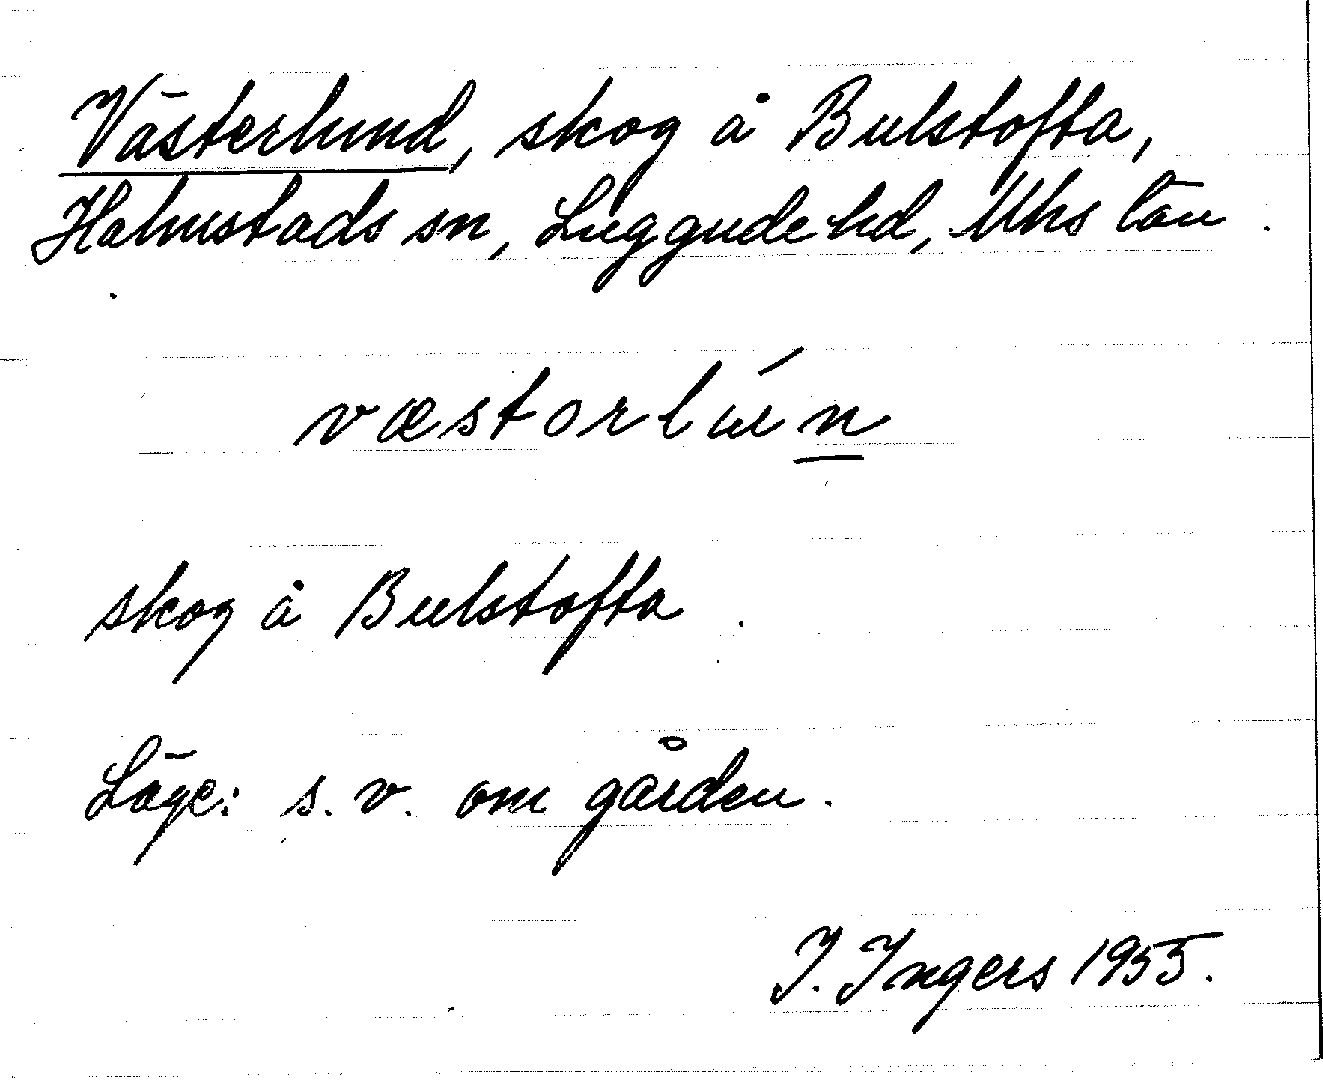 Västerlund, skog å Bulstofta,
Halmstads sn, Luggude hd, Mhs län.
væstorlún
skog å Bulstofta.
Läge: s. v. om gården.
I. Ingers 1955.